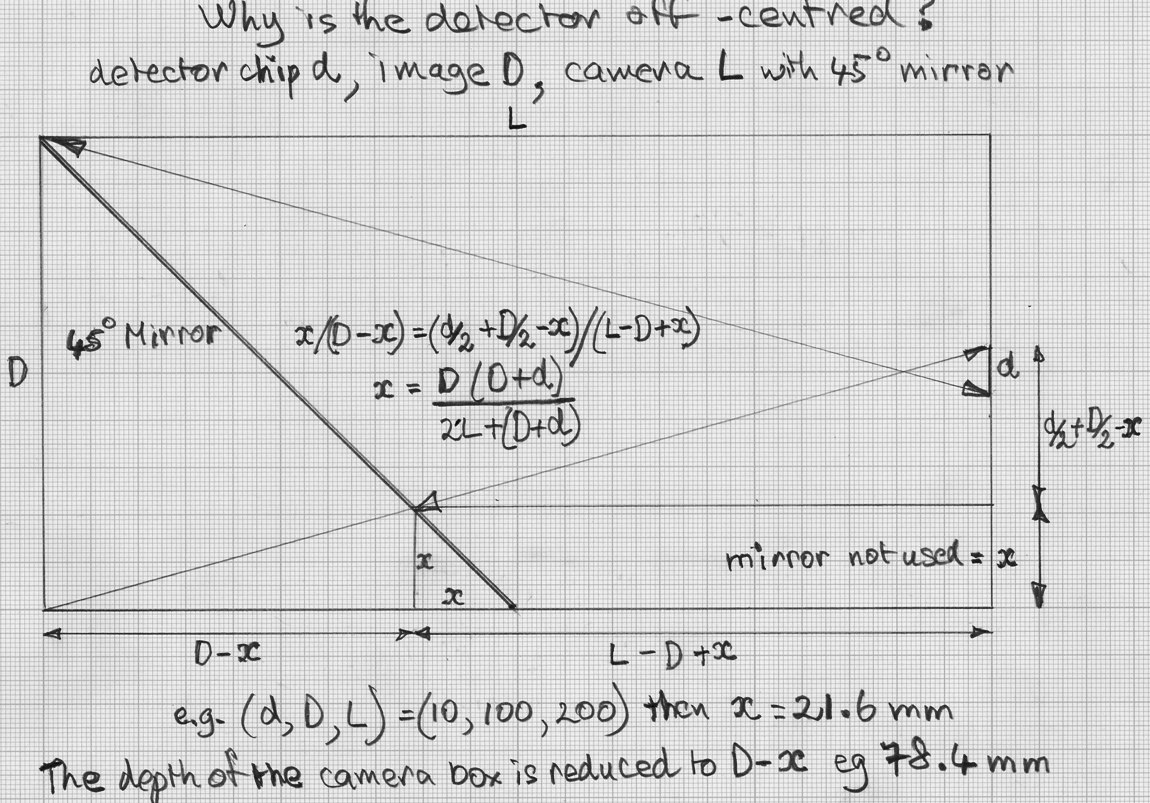 Why is the detector off-centred?
detector chip d, image D, camera L with 45° mirror
L
45° Mirror
x/(D-x) = (d/2+D/2-x)/(L-D+x)
D
d
x = D(D+d)/2L+(D+d)
d/2+D/2-x
x
mirror not used = x
x
D-x
L-D+x
e.g. (d, D, L) = (10, 100, 200) then x = 21.6 mm
The depth of the camera box is reduced to D-x eg 78.4 mm